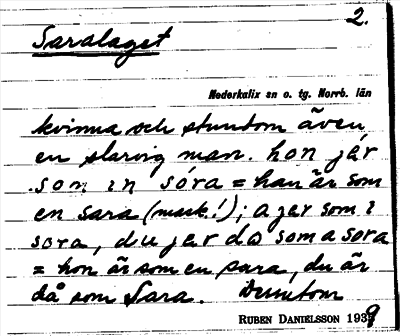 2.
Saralaget
Nederkalix sn o. tg. Norrb. län
kvinna och stundom även
en slarvig man. hon jer
som in sóra = han är som
en sara (mask!); a jer som i
sora, du jer da som a sora
= hon är som en sara, du är
då som Sara. Dessutom
RUBEN DANIELSSON 1939